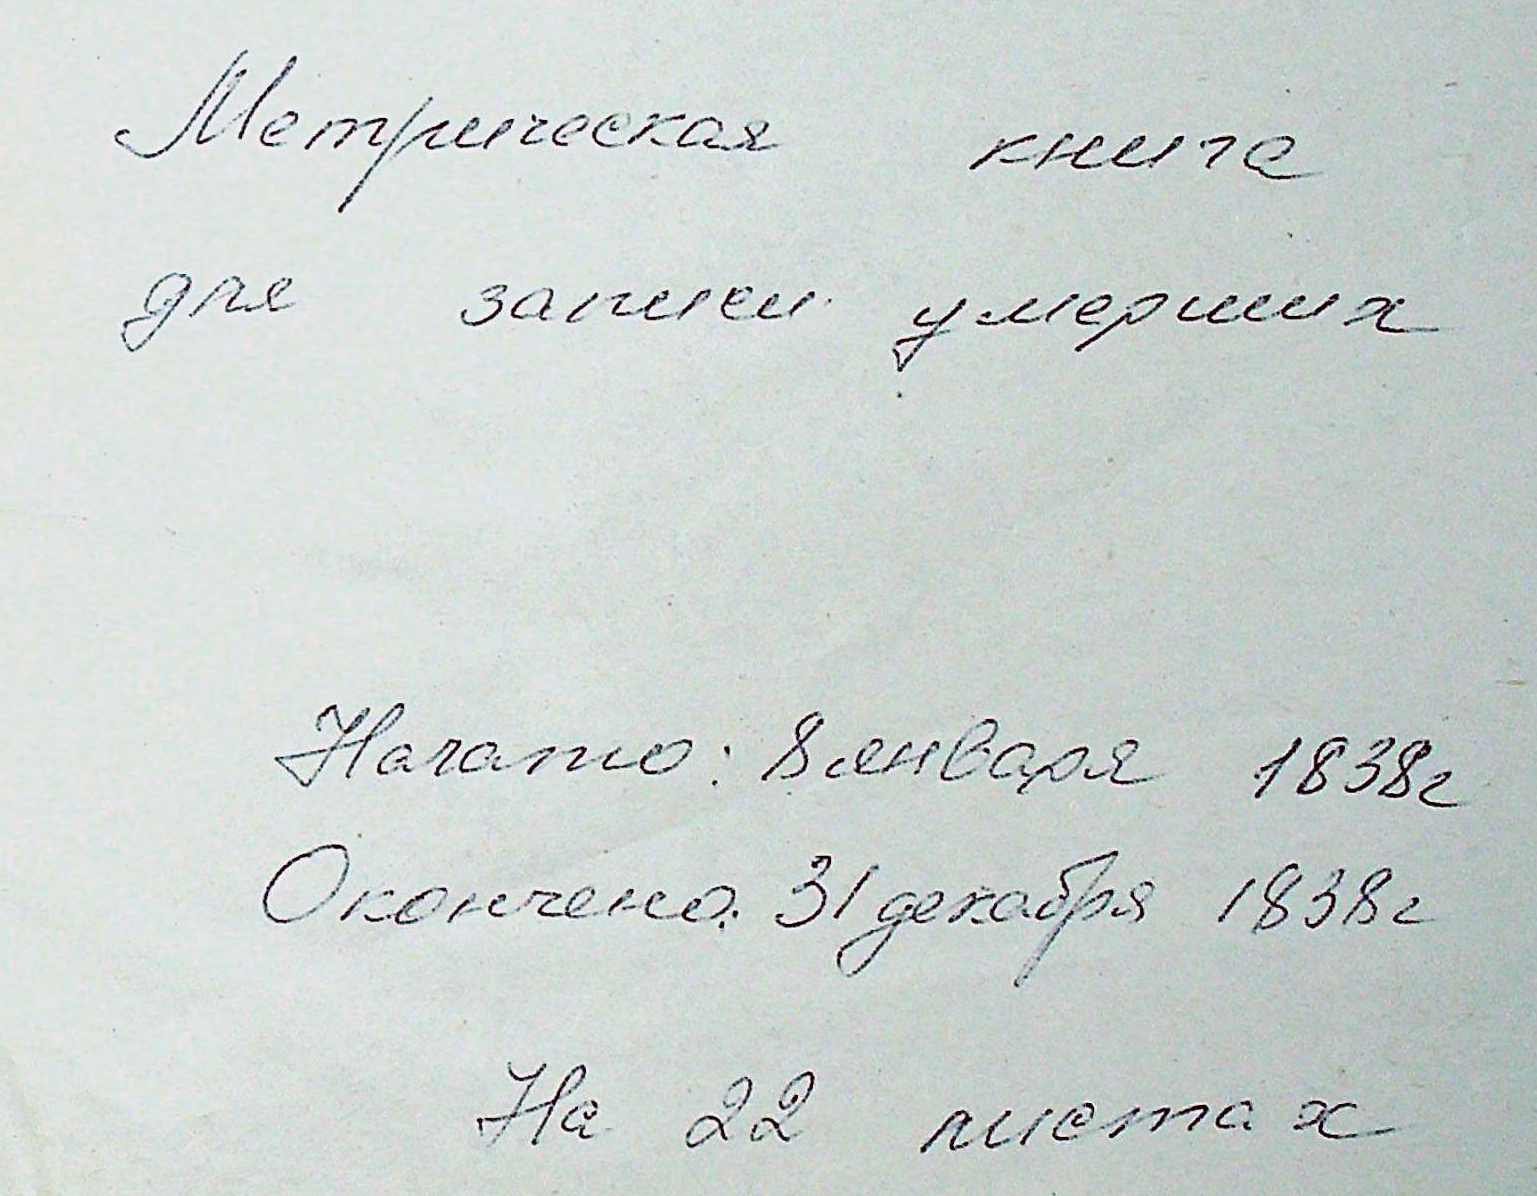 Метрическая книга
для записи умерших
Начато: 8 января 1838г
Окончено: 31 декабря 1838г
На 22 листах